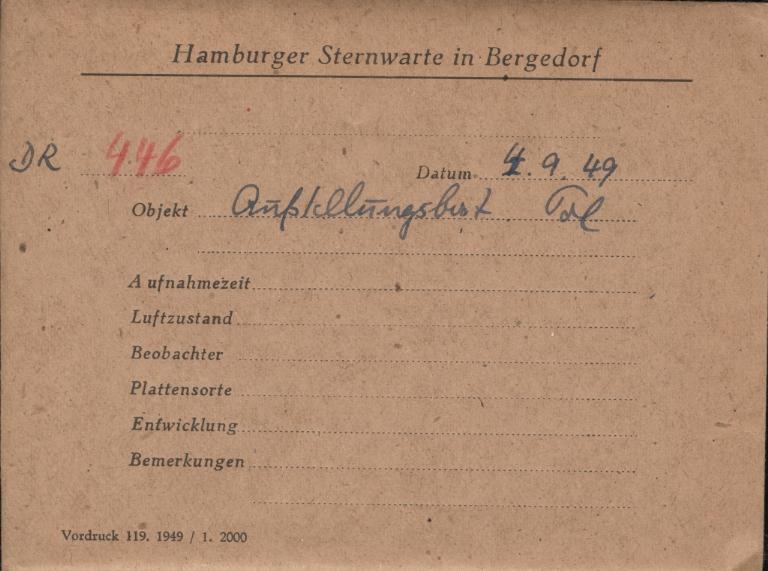 Hamburger Sternwarte in Bergedorf
DR 446
Datum 4. 9. 49
Objekt Aufstellungsbest Pol
Aufnahmezeit
Luftzustand
Beobachter
Plattensorte
Entwicklung
Bemerkungen
Vordruck 119. 1949 / 1. 2000